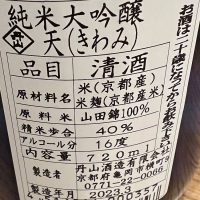 純米大吟醸
天(きわみ)
品目 清酒
原材料名 米(京都産)
米麹(京都産米)
原料米 山田錦100%
精米歩合 40%
アルコール分 16度
内容量 720ml
製造者 丹山酒造有限会社
京都府亀岡市横町7
0771-22-0066
製造年月 2023.3
お酒は二十歳になってから